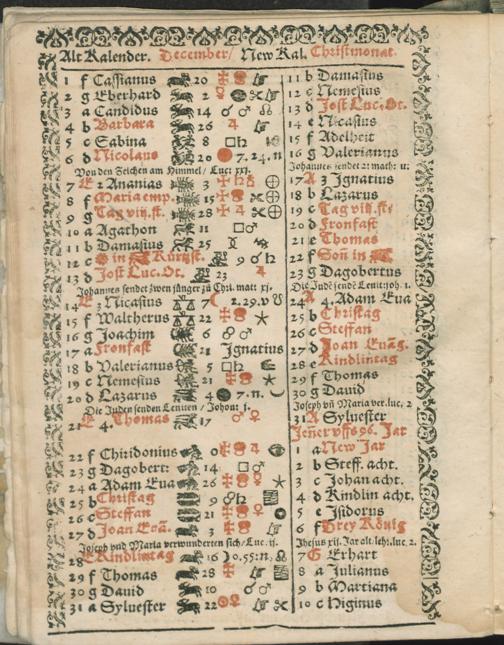 Alt Kalender. December/ New Kal. Christmonat.
1 f Cassianus 20
2 g Eberhard 2
3 a Candidus 14 ☌ ♂ ☊
4 b Barbara 26 ♃
5 c Sabina 8 □ ♄
6 d Nicolaus 20 7. 24. n
Von den Zeichen am Himmel/ Luc: xxj.
7 E 2 Ananias 3
8 f Maria emp. 15
9 g Tag viij. st: 28
10 a Agathon 11 □ ♂
11 b Damasius 25
12 c ☉ in Kürtzst. 9
13 d Jost Luc. Ot. 23 ♃
Johannes sendet zwen jünger zu Chri. matt: xj.
14 E 3 Nicasius 7 2. 29. v
15 f Waltherus 22
16 g Joachim 6 ☍ ♂
17 a Fronfast 21 Ignatius
18 b Valerianus 5
19 c Nemesius 21
20 d Lazarus 4 7. n.
Die Juden senden Leuiten / Johan: j.
21 E 4. Thomas 17 ♂ ♀
22 f Chiridonius 0
23 g Dagobert: 14 □ ♂
24 a Adam Eua 26
25 b Christag 9 ☍ ♄
26 c Steffan 21
27 d Joan Euã. 3
Joseph vnd Maria verwunderten sich/ Luc. ij.
28 E Kindlintag 16 0. 55: n.
29 f Thomas 28
30 g Dauid 10
31 a Syluester 22
11 b Damasius
12 c Nemesius
13 d Jost Luc. Ot.
14 e Nicasius
15 f Adelheit
16 g Valerianus
Johannes sendet 2: math: 11:
17 A 3 Ignatius
18 b Lazarus
19 c Tag viij. st:
20 d Fronfast
21 e Thomas
22 f Soñ in
23 g Dagobertus
Die Judē sendē Leuit: joh. 1.
24 A 4. Adam Eua
25 b Christag
26 c Steffan
27 d Joan Euãg.
28 e Kindlintag
29 f Thomas
30 g Dauid
Joseph vñ Maria ver. luc. 2
31 A Syluester
Jener vffs 96. Jar
1 a New Jar
2 b Steff. acht.
3 c Johan acht.
4 d Kindlin acht.
5 e Isidorus
6 f Drey König
Jhesus xij. Jar alt. lehr. luc. 2.
7 G Erhart
8 a Julianus
9 b Martiana
10 c Higinus